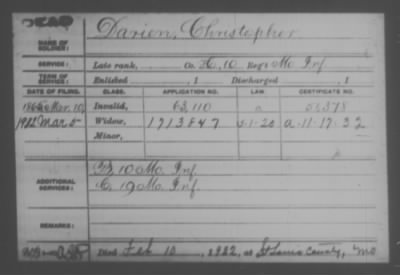 DEAD
NAME OF SOLDIER: Darien, Christopher
SERVICE: Late rank, Co. H, 10 Reg't Mo Inf
TERM OF SERVICE: Enlisted , 1 Discharged , 1
DATE OF FILING. CLASS. APPLICATION NO. LAW. CERTIFICATE NO.
Mar. 10, Invalid, 63,110 a
1922 Mar 5 Widow, 1713847 5-1-20 a-11-17-32
Minor,
ADDITIONAL SERVICES: B. 10 Mo. Inf
C. 19 Mo. Inf.
REMARKS:
Died Feb 10, 1922, at St Louis County, Mo